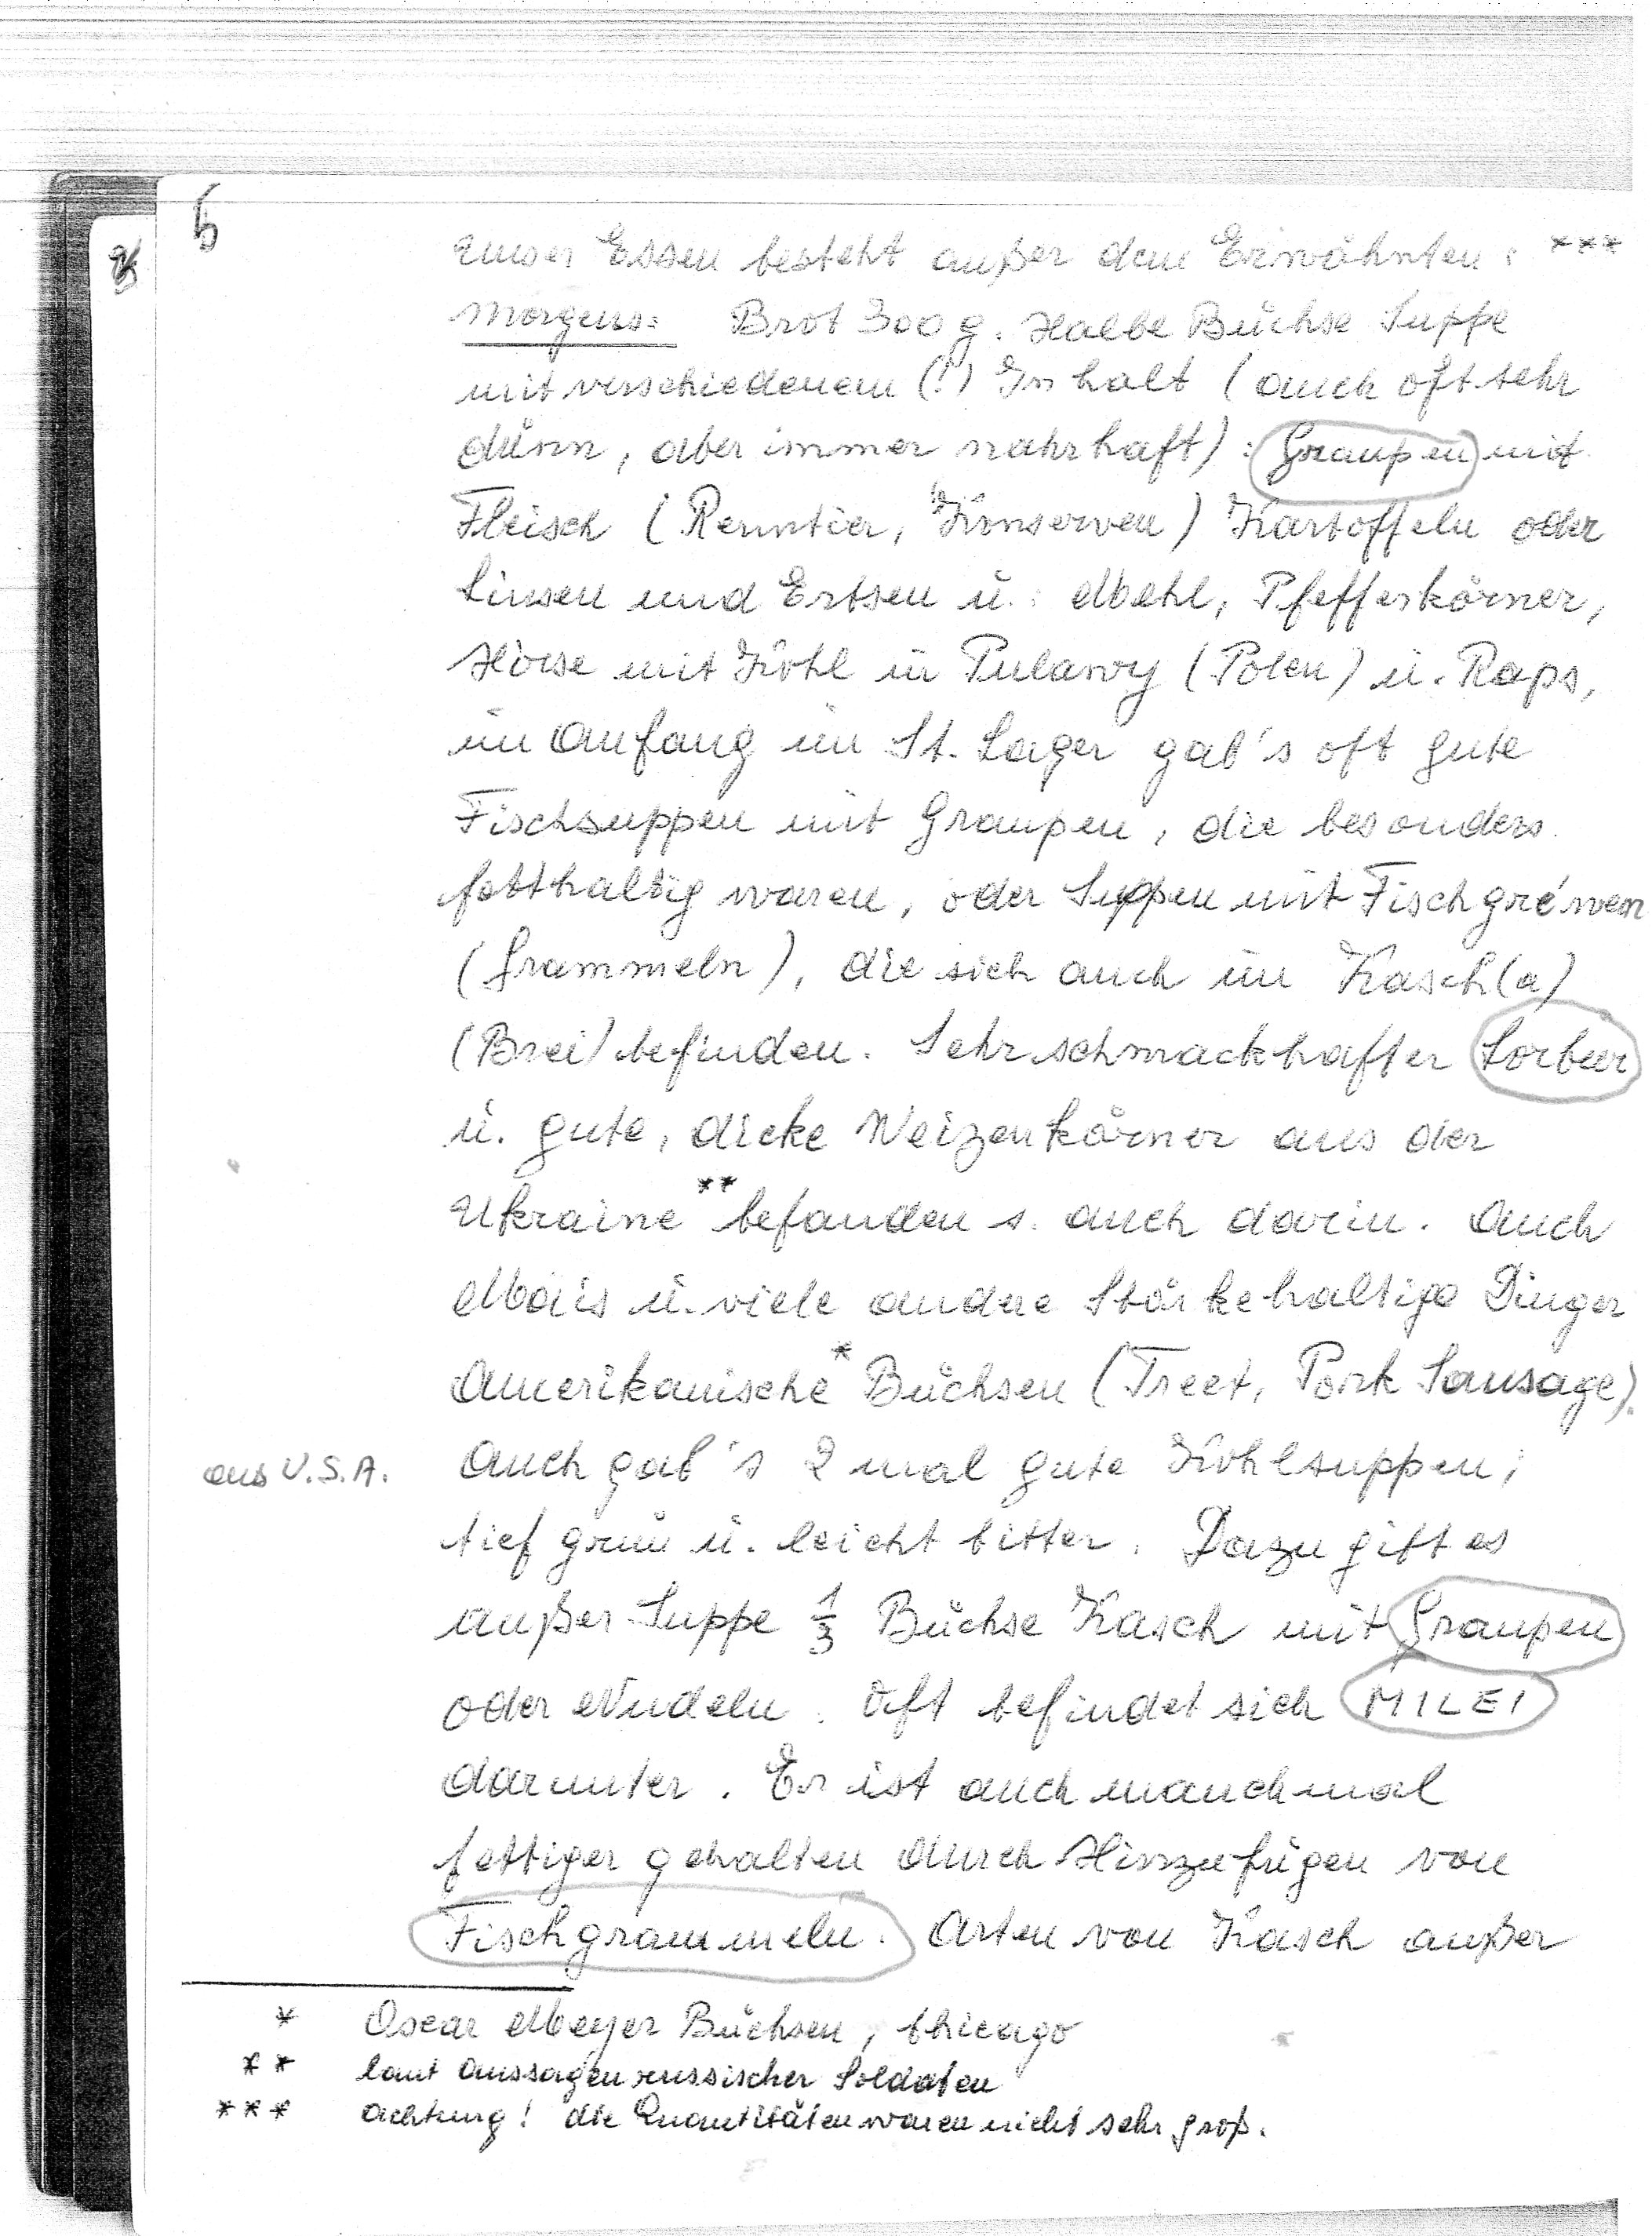 6
unser Essen besteht außer dem Erwähnten: ***
Morgens: Brot 300 g. Halbe Büchse Suppe
mit verschiedenem (!) Inhalt (auch oft sehr
dünn, aber immer nahrhaft): Graupen mit
Fleisch (Renntier, Konserven) Kartoffeln oder
Linsen und Erbsen u. Mehl, Pfefferkörner,
Hirse mit Kohl in Pulawy (Polen) u. Raps,
im Anfang im St. Lager gab's oft gute
Fischsuppen mit Graupen, die besonders
fetthaltig waren, oder Suppen mit Fischgréwen
(Grammeln), die sich auch im Kasch(a)
(Brei) befinden. Sehr schmackhafter Lorbeer
u. gute, dicke Weizenkörner aus der
Ukraine ** befanden s. auch darin. Auch
Mais u. viele andere Stärkehaltige Dinger
Amerikanische * Büchsen (Treet, Pork Sausage).
aus U.S.A. Auch gab's 2 mal gute Kohlsuppen;
tief grün u. leicht bitter. Dazu gibt es
außer Suppe 1/3 Büchse Kasch mit Graupen
oder Nudeln. Oft befindet sich MILEI
darunter. Er ist auch manchmal
fettiger gehalten durch Hinzufügen von
Fischgrammeln. Arten von Kasch außer
* Oscar Meyer Büchsen, Chicago
** laut Aussagen russischer Soldaten
*** Achtung! die Quantitäten waren nicht sehr groß.